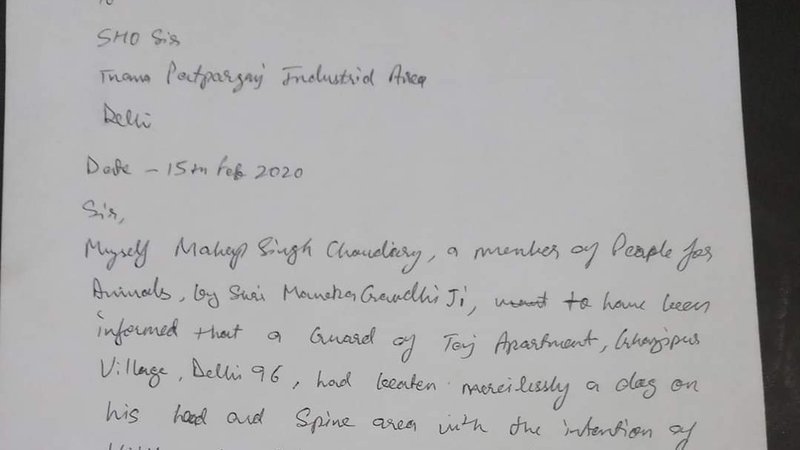 To
SHO Sir
Thana Patparganj Industrial Area
Delhi
Date - 15th Feb 2020
Sir,
Myself Singh Choudhary, a member of People for
Animals, by Smt Maneka Gandhi Ji, want to have been
informed that a Guard of Taj Apartment, Ghazipur
Village, Delhi 96, had beaten mercilessly a dog on
his head and Spine area with the intention of